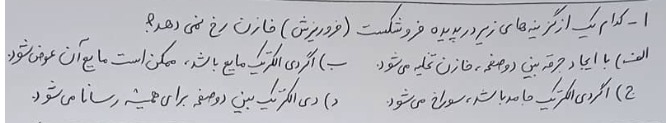 ۱- کدام یک از گزینه های زیر در پدیده فروشکست (فروریزش) خازن رخ نمی دهد؟
الف) با ایجاد جرقه بین دو صفحه، خازن تخلیه می شود. ب) اگر دی الکتریک مایع باشد، ممکن است مایع آن عوض شود.
ج) اگر دی الکتریک جامد باشد، سوراخ می شود. د) دی الکتریک بین دو صفحه برای همیشه رسانا می شود